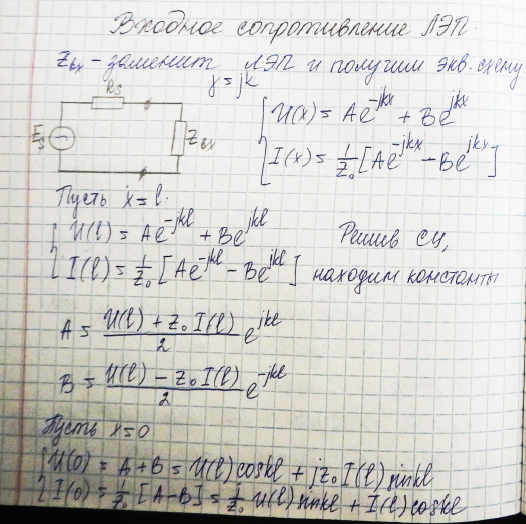 Входное сопротивление ЛЭП.
Zвх - заменит ЛЭП и получим экв. схему
γ = jk
Rs
Es
Zвх
U(x) = Ae^-jkx + Be^jkx
I(x) = 1/Z₀ [Ae^-jkx - Be^jkx]
Пусть x = l.
U(l) = Ae^-jkl + Be^jkl
Решив СУ,
I(l) = 1/Z₀ [Ae^-jkl - Be^jkl]
находим константы
A = (U(l) + Z₀ I(l))/2 e^jkl
B = (U(l) - Z₀ I(l))/2 e^-jkl
Пусть x = 0
U(0) = A + B = U(l) cos kl + jZ₀ I(l) sin kl
I(0) = 1/Z₀ [A - B] = 1/Z₀ U(l) sin kl + I(l) cos kl